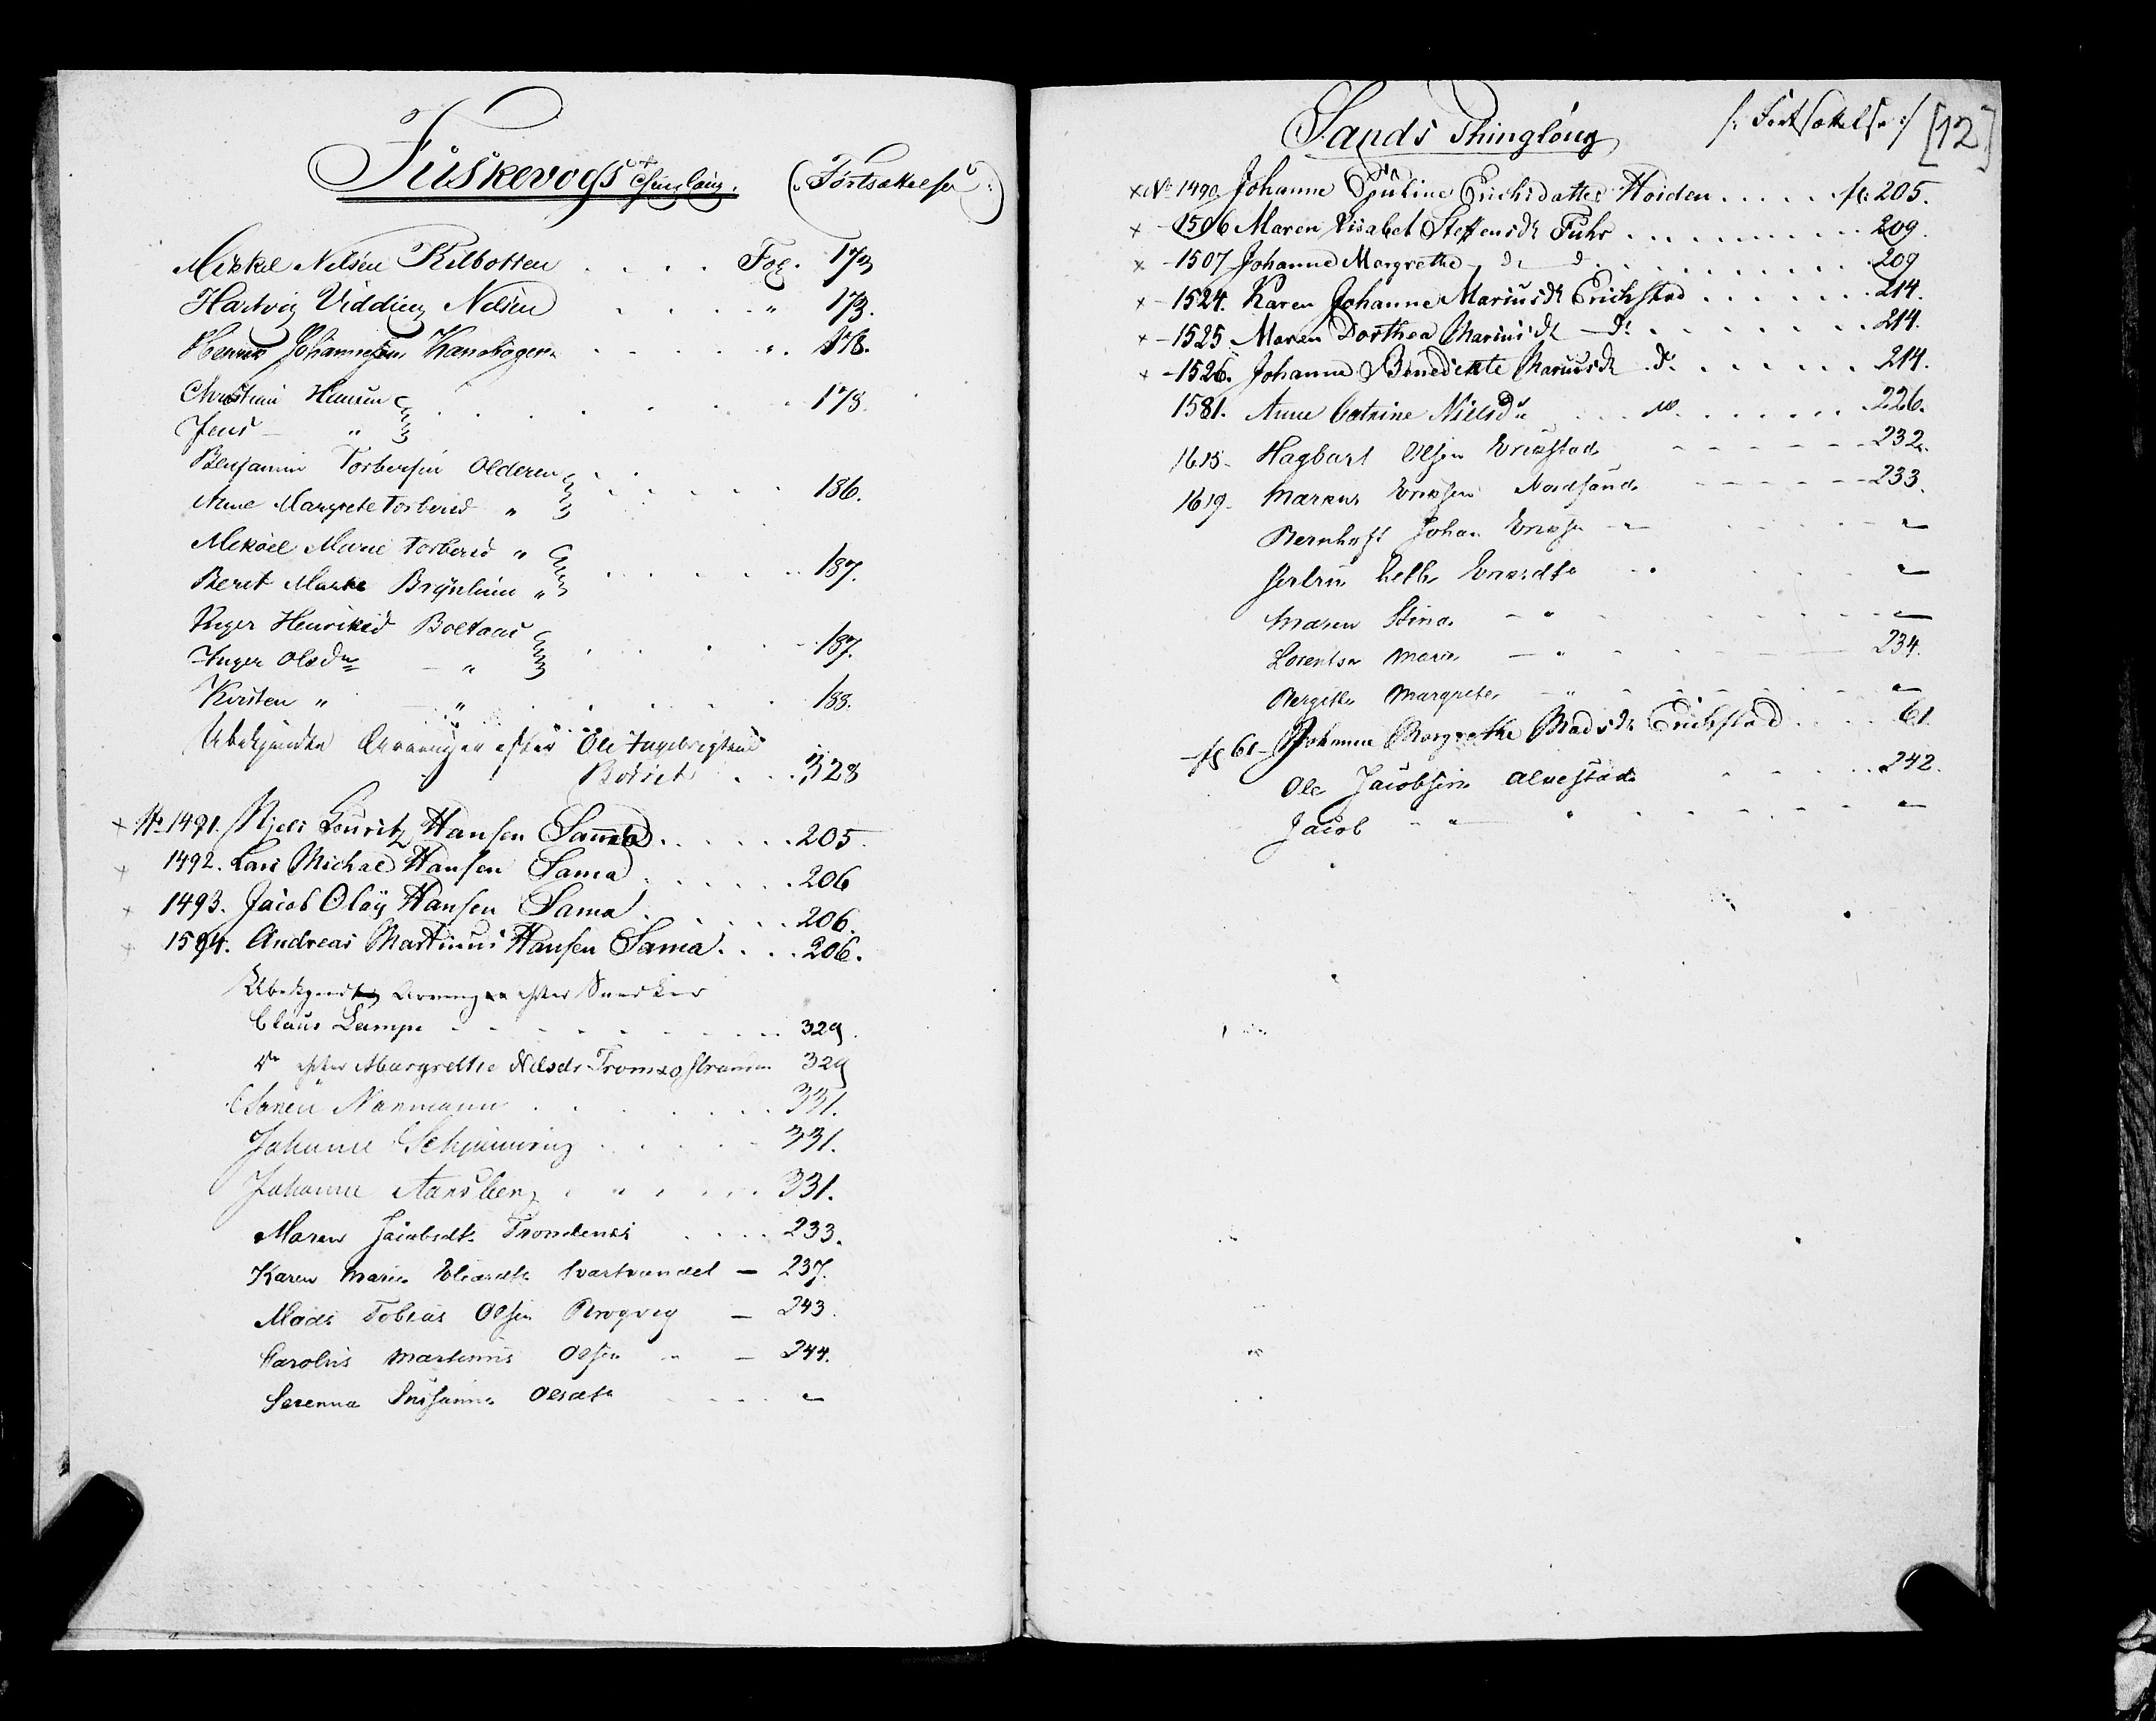 Fuskevogs Thinglaug. (Fortsættelse)
Mikkel Nilsen Kilbotten . . . . Fog. 173
Hartvig Vidding Nilsen . . . . " 173.
Henrik Johannesen Kanebogen . . . . ". 178.
Christian Hansen . . . . 178.
Jens — "
Benjamin Torbersen Olderen
Anne Margrete Torbersd " . . . . 186.
Mikael Marie Torbersd "
Beret Marte " . . . . 187.
Inger Henriksd Boltaas
Inger Olsdr — " . . . . 187.
Kirsten " — " . . . . 188.
Ubekjendte Arvinger efter Ole Ingebrigtsen
. . . 328
× No 1491. Niels Lauritz Hansen Sama . . . . . . 205.
× 1492. Lars Michael Hansen Sama . . . . . . 206
× 1493. Jacob Olay Hansen Sama . . . . . 206.
× 1594. Andreas Martinus Hansen Sama . . . . 206.
Ubekjendte Arvinger efter Snedker
Claus Lampe - - - - - - 329.
do efter Margrethe Nilsdr Tromsøstrømmen 329
Normann . . . . . . 331.
Johanne . . . . . 331.
Johanne Aansberg . . . . . 331.
Maren Jacobsdtr Trondenes . . . . 233.
Karen Marie — 237.
Mads Tobias Olsen — 243.
Carolus Martinus Olsen " — 244.
Serenna Susanna Olsdtr - - - - "
Sands Thinglaug /: Fortsættelse :/ [12]
× No 1490. Johanne Pauline Erichsdatter Høiden . . . . . fo. 205.
× - 1506 Maren Elisabet Steffensdr Fuhr . . . . . 209.
× - 1507 Johanne Margrethe do do . . . . . 209
× - 1524. Karen Johanne Mariusdr Erichstad . . . . . . 214.
× - 1525 Maren Dorthea Mariusdr — do . . . . . 214.
× - 1526. Johanne Benedikte Mariusdr do . . . . . . 214.
1581. Anne Catrine Nielsdr . . . . . 226.
1615 - Hagbart Olsen Erikstad - - - - - - 232.
1619 - Markus Eriksen Nordsand - - - - - - 233.
Bernhoft Johan Eriksen — " - - - "
Eriksdtr - - "
Maren Stina - " - - - "
Lorentse Marie — " - - - 234.
Bergitte Margrete - " - - - "
- fo 61 - Johanne Margrethe Madsdr Erichstad . . . . 61.
Ole Jacobsen Alvestad . . . . 242.
Jacob - " — " - - - "